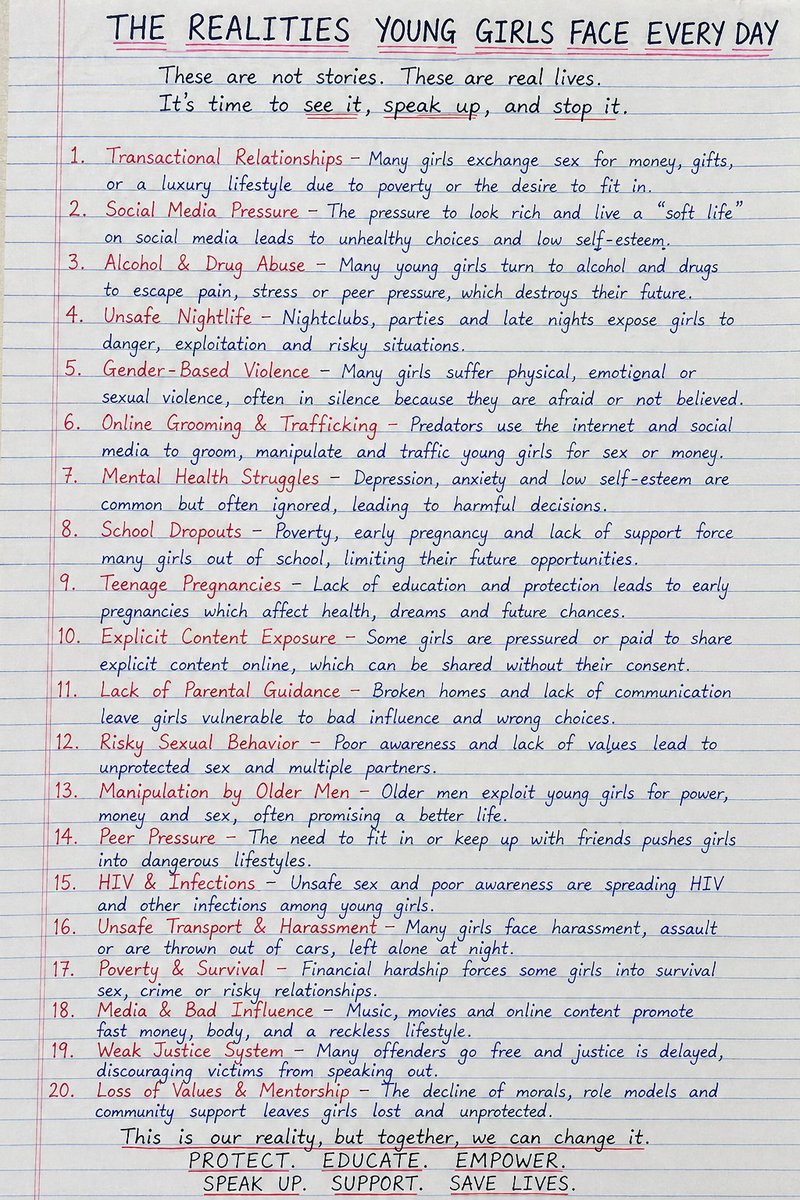 THE REALITIES YOUNG GIRLS FACE EVERY DAY
These are not stories. These are real lives.
It's time to see it, speak up, and stop it.
1. Transactional Relationships – Many girls exchange sex for money, gifts,
or a luxury lifestyle due to poverty or the desire to fit in.
2. Social Media Pressure – The pressure to look rich and live a "soft life"
on social media leads to unhealthy choices and low self-esteem.
3. Alcohol & Drug Abuse – Many young girls turn to alcohol and drugs
to escape pain, stress or peer pressure, which destroys their future.
4. Unsafe Nightlife – Nightclubs, parties and late nights expose girls to
danger, exploitation and risky situations.
5. Gender-Based Violence – Many girls suffer physical, emotional or
sexual violence, often in silence because they are afraid or not believed.
6. Online Grooming & Trafficking – Predators use the internet and social
media to groom, manipulate and traffic young girls for sex or money.
7. Mental Health Struggles – Depression, anxiety and low self-esteem are
common but often ignored, leading to harmful decisions.
8. School Dropouts – Poverty, early pregnancy and lack of support force
many girls out of school, limiting their future opportunities.
9. Teenage Pregnancies – Lack of education and protection leads to early
pregnancies which affect health, dreams and future chances.
10. Explicit Content Exposure – Some girls are pressured or paid to share
explicit content online, which can be shared without their consent.
11. Lack of Parental Guidance – Broken homes and lack of communication
leave girls vulnerable to bad influence and wrong choices.
12. Risky Sexual Behavior – Poor awareness and lack of values lead to
unprotected sex and multiple partners.
13. Manipulation by Older Men – Older men exploit young girls for power,
money and sex, often promising a better life.
14. Peer Pressure – The need to fit in or keep up with friends pushes girls
into dangerous lifestyles.
15. HIV & Infections – Unsafe sex and poor awareness are spreading HIV
and other infections among young girls.
16. Unsafe Transport & Harassment – Many girls face harassment, assault
or are thrown out of cars, left alone at night.
17. Poverty & Survival – Financial hardship forces some girls into survival
sex, crime or risky relationships.
18. Media & Bad Influence – Music, movies and online content promote
fast money, body, and a reckless lifestyle.
19. Weak Justice System – Many offenders go free and justice is delayed,
discouraging victims from speaking out.
20. Loss of Values & Mentorship – The decline of morals, role models and
community support leaves girls lost and unprotected.
This is our reality, but together, we can change it.
PROTECT. EDUCATE. EMPOWER.
SPEAK UP. SUPPORT. SAVE LIVES.